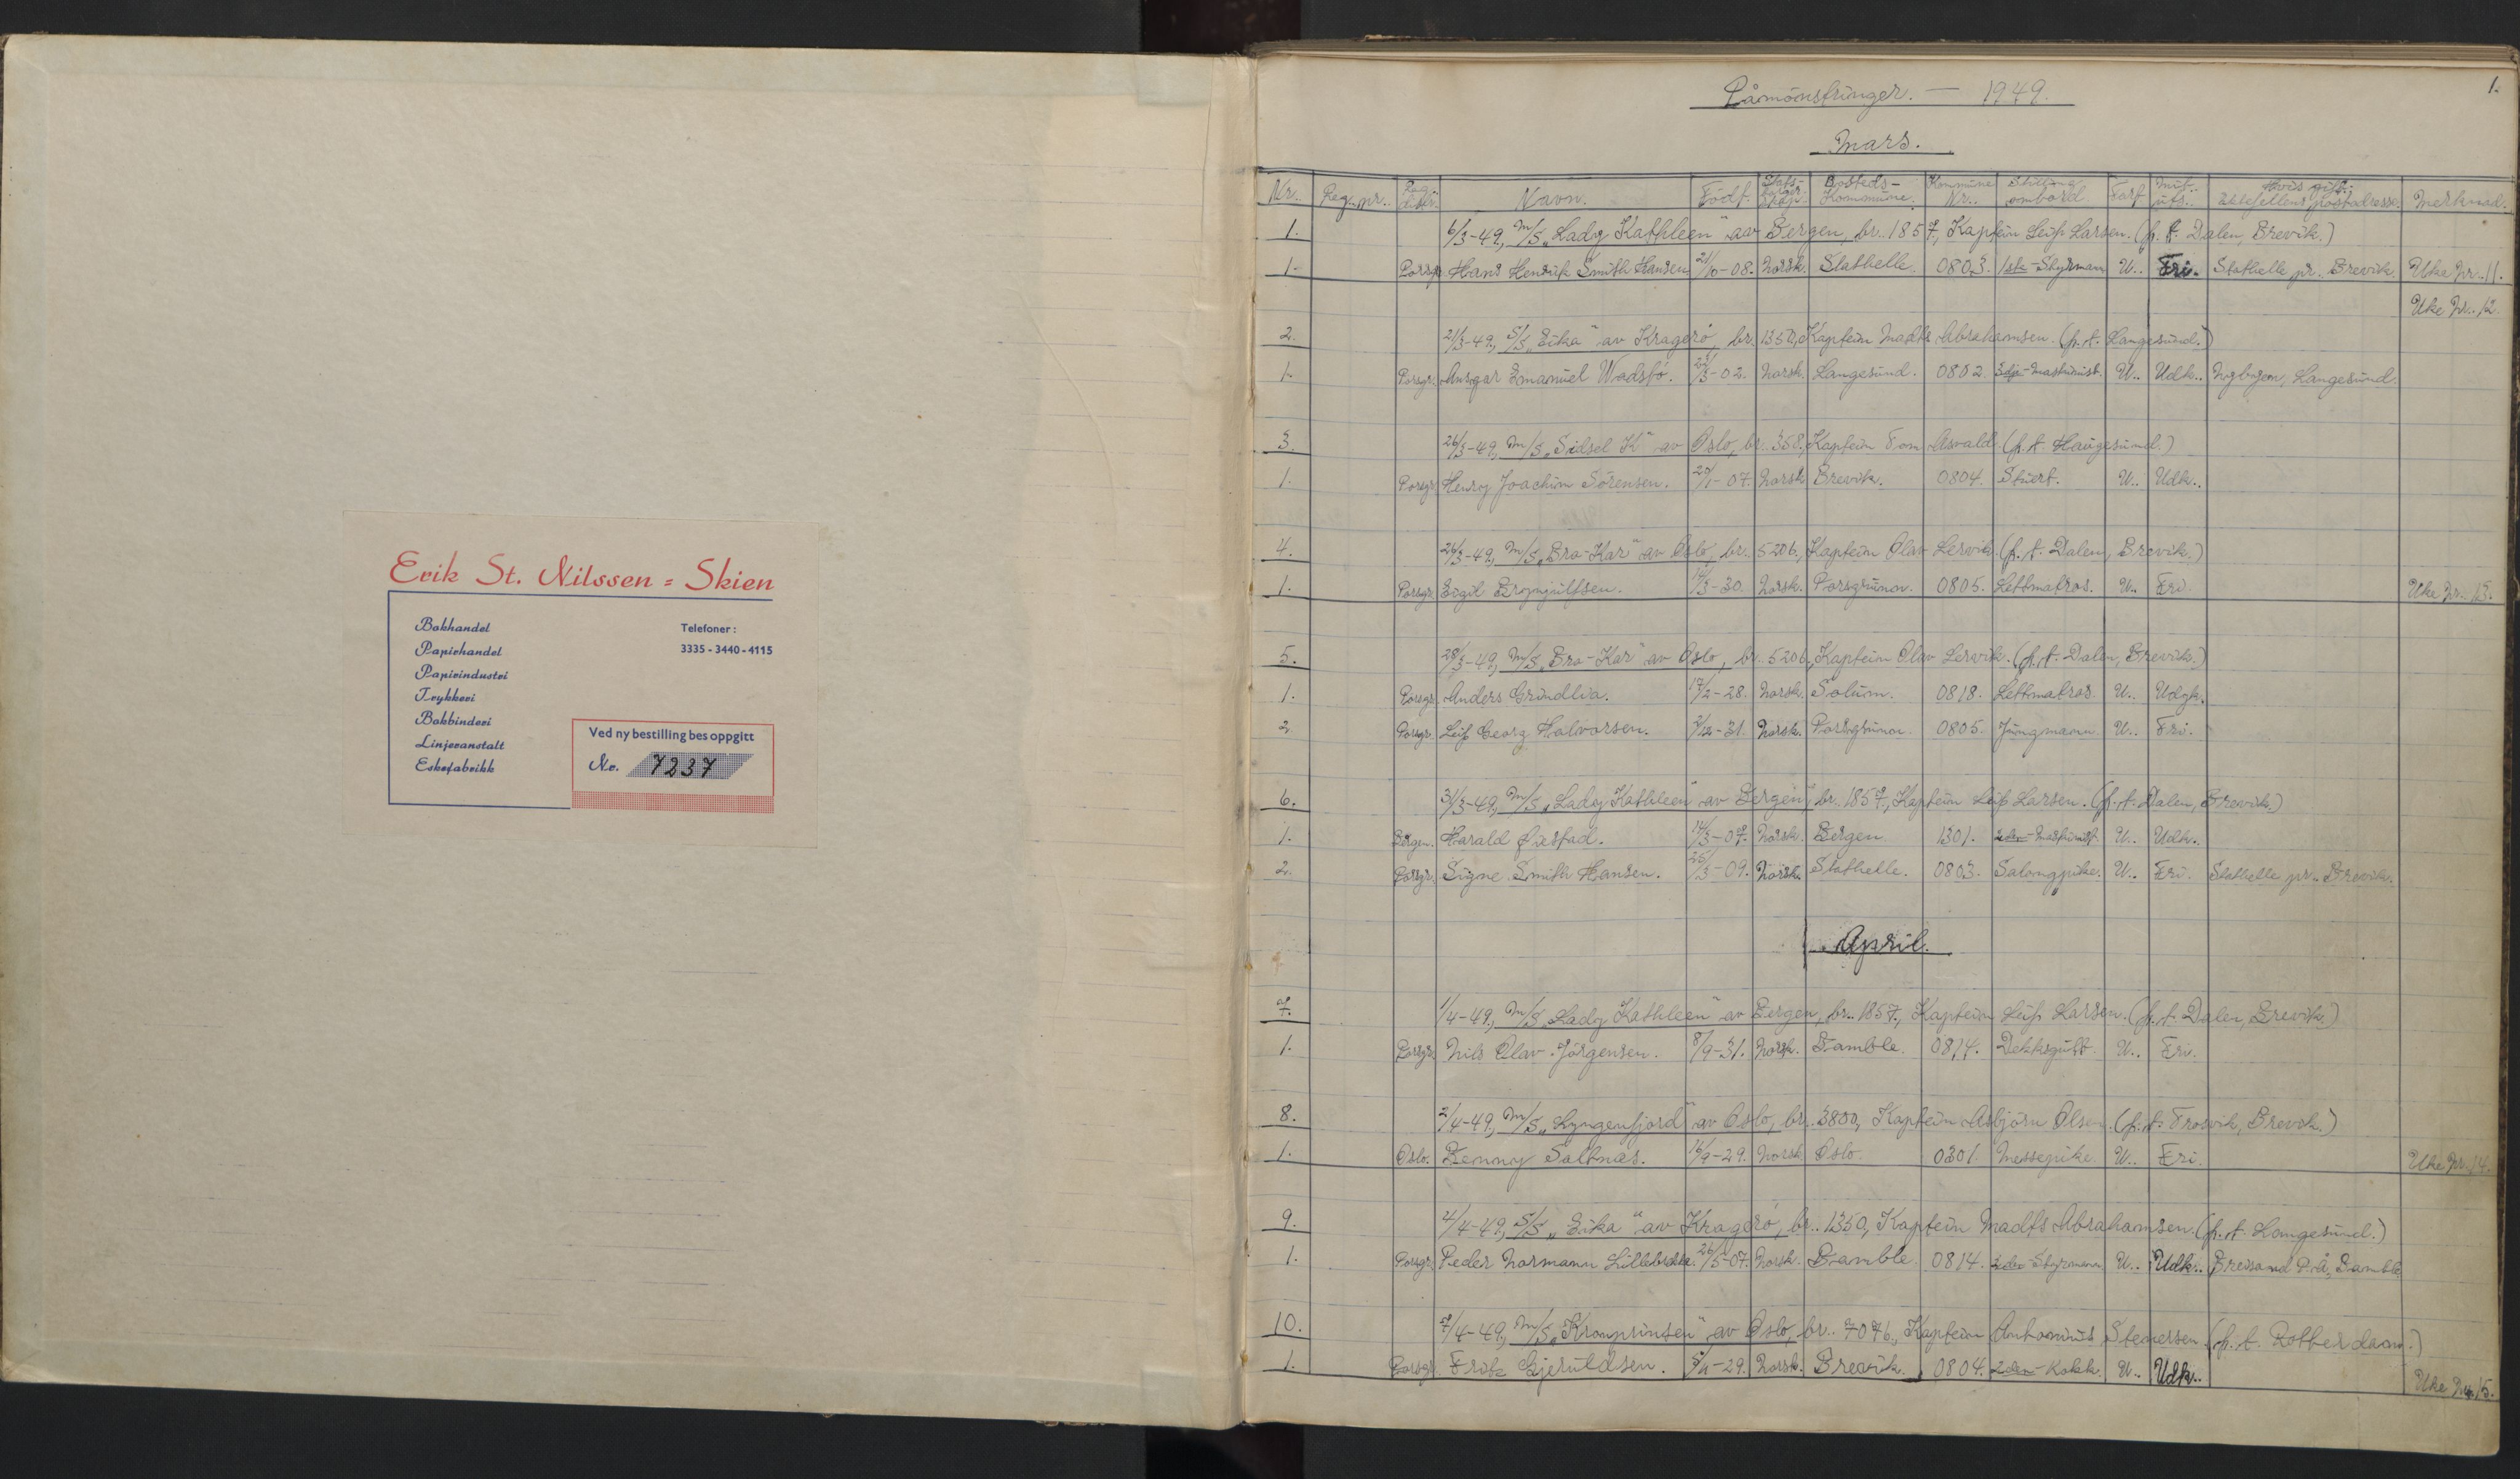 Erik St. Nilssen = Skien
Bokhandel
Papirhandel
Papirindustri
Trykkeri
Bokbinderi
Linjeranstalt
Eskefabrikk
Telefoner :
3335 - 3440 - 4115
Ved ny bestilling bes oppgitt
Nr. 7237
1.
Påmönstringer. — 1949.
Mars.
Nr. Reg. nr. Navn. Födt. Stats- Bosteds- Kommune. Kommune Nr. Stilling ombord. Fart. Hvis gift: Ektefellens postadresse. Merknad.
1. 6/3-49, M/S „Lady Kathleen" av Bergen, br. 1857, Kaptein Leif Larsen. (p. t. Dalen, Brevik.)
1. Porsgr. Hans Henrik Smith Hansen 21/10-08. Norsk. Stathelle. 0803. 1ste-Styrmann U.. Fri. Stathelle pr. Brevik. Uke Nr. 11.
Uke Nr. 12.
2. 21/3-49, S/S „Eika" av Kragerö, br. 1350, Kaptein Madts Abrahamsen. (p. t. Langesund.)
1. Porsgr. Ansgar Emanuel Wadsfö. Norsk. Langesund. 0802. 3dje-Maskinist. U.. Udk.. Langesund.
3. 26/3-49, M/S „Sidsel K" av Oslo, br. 358, Kaptein Tom Asvald. (p. t. Haugesund.)
1. Porsgr. Henry Joachim Sörensen. Norsk Brevik. 0804. Stuert. U.. Udk..
4. 26/3-49, M/S „Bra-Kar" av Oslo, br. 5206, Kaptein Olav Lervik. (p. t. Dalen, Brevik.)
1. Porsgr. Eigil Brynjulfsen. 14/3-30. Norsk. Porsgrunn. 0805. Lettmatros. U.. Fri. Uke Nr. 13.
5. 28/3-49, M/S „Bra-Kar" av Oslo, br. 5206, Kaptein Olav Lervik. (p. t. Dalen, Brevik.)
1. Porsgr. Anders Grindlia. 17/2-28. Norsk. Solum. 0818. Lettmatros U..
2. Porsgr. Leif Georg Halvorsen. Norsk. Porsgrunn. 0805. Jungmann. U.. Fri.
6. 31/3-49, M/S „Lady Kathleen" av Bergen, br. 1857, Kaptein Leif Larsen. (p. t. Dalen, Brevik.)
1. Bergen. Harald 14/3-07. Norsk. Bergen 1301. 2den-Maskinist. U.. Udk..
2. Porsgr. Signe Smith Hansen. 25/3-09. Norsk. Stathelle. 0803. Salongpike. U.. Fri. Stathelle pr. Brevik.
April.
7. 1/4-49, M/S „Lady Kathleen" av Bergen, br. 1857, Kaptein Leif Larsen. (p. t. Dalen, Brevik.)
1. Porsgr. Nils Olav Jörgensen. 8/9-31. Norsk. Bamble. 0814. Dekksgutt. U.. Fri.
8. 2/4-49, M/S „Lyngenfjord" av Oslo, br. 3800, Kaptein Asbjörn Olsen. (p. t. Trosvik, Brevik.)
1. Oslo. Saltnes. 16/9-29. Norsk Oslo. 0301. Messepike. U.. Fri. Uke Nr. 14.
9. 4/4-49, S/S „Eika" av Kragerö, br. 1350, Kaptein Madts Abrahamsen. (p. t. Langesund.)
1. Porsgr. Peder Normann 26/5-07. Norsk. Bamble. 0814. 2den-Styrmann U.. Udk.. Breisand P. å, Bamble
10. 7/4-49, M/S „Kronprinsen" av Oslo, br. 7076, Kaptein Antonius Stenersen (p. t. Rotterdam.)
1. Porsgr. Gjeruldsen. Norsk. Brevik. 0804. 2den-Kokk. U.. Udk.. Uke Nr. 15.